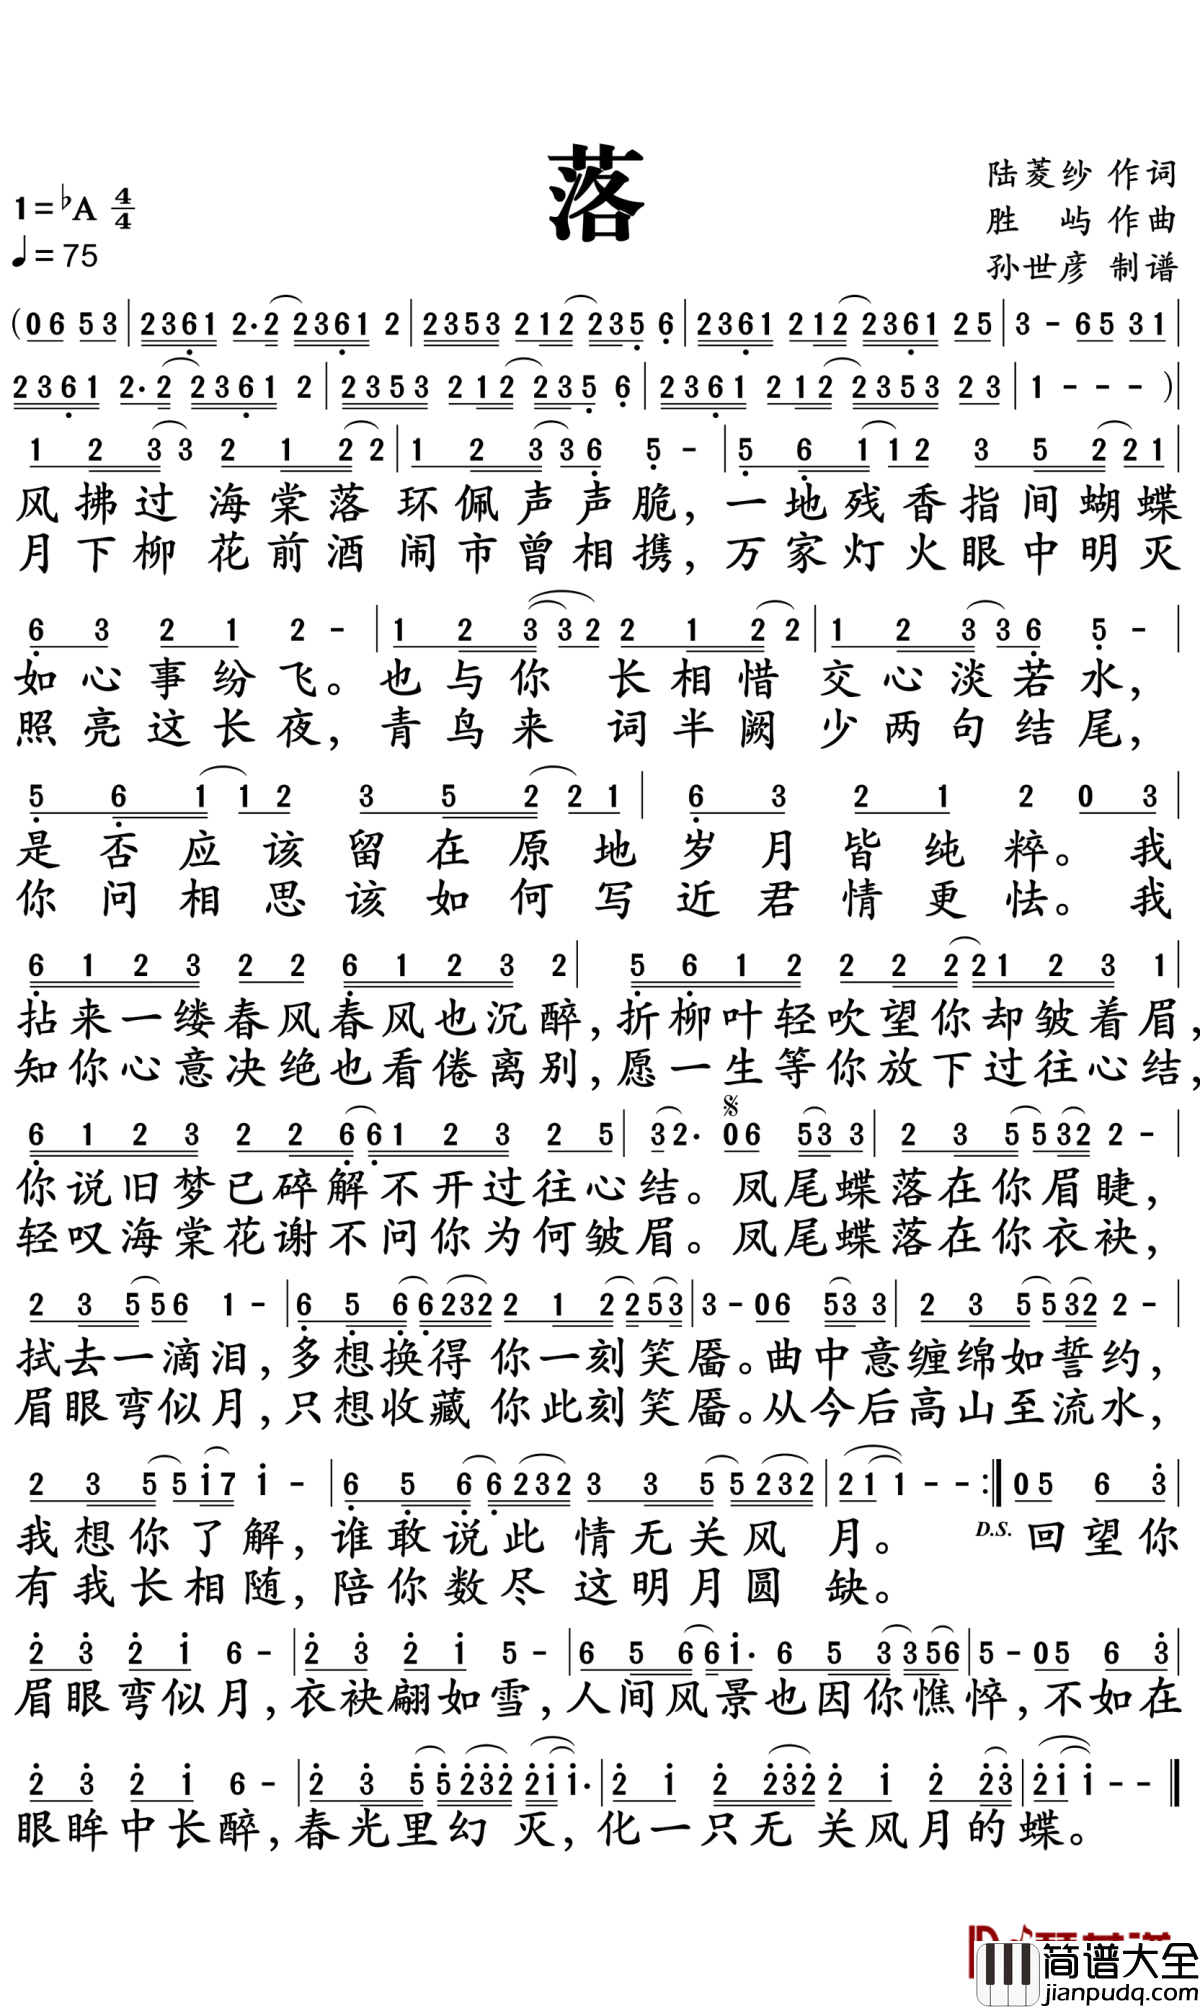 落
陆菱纱 作词
胜 屿 作曲
孙世彦 制谱
1=♭A 4/4
♩=75
(06 53|2361 2·2 2361 2|2353 212 235 6|2361 212 2361 25|3 - 65 31|
2361 2·2 2361 2|2353 212 235 6|2361 212 2353 23|1 - - - )|
1 2 3 3 2 1 2 2|1 2 3 3 6 5 -|5 6 1 1 2 3 5 2 2 1|
风拂过海棠落环佩声声脆,一地残香指间蝴蝶
月下柳花前酒闹市曾相携,万家灯火眼中明灭
6 3 2 1 2 -|1 2 3 3 2 2 1 2 2|1 2 3 3 6 5 -|
如心事纷飞。也与你 长相惜 交心淡若水,
照亮这长夜,青鸟来 词半阙 少两句结尾,
5 6 1 1 2 3 5 2 2 1|6 3 2 1 2 0 3|
是否应该留在原地岁月皆纯粹。我
你问相思该如何写近君情更怯。我
6 1 2 3 2 2 6 1 2 3 2|5 6 1 2 2 2 2 2 1 2 3 1|
拈来一缕春风春风也沉醉,折柳叶轻吹望你却皱着眉,
知你心意决绝也看倦离别,愿一生等你放下过往心结,
6 1 2 3 2 2 6 6 1 2 3 2 5|3 2· 𝄋 0 6 5 3 3|2 3 5 5 3 2 2 -|
你说旧梦已碎解不开过往心结。凤尾蝶落在你眉睫,
轻叹海棠花谢不问你为何皱眉。凤尾蝶落在你衣袂,
2 3 5 5 6 1 -|6 5 6 6 2 3 2 2 1 2 2 5 3|3 - 0 6 5 3 3|2 3 5 5 3 2 2 -|
拭去一滴泪,多想换得 你一刻笑靥。曲中意缠绵如誓约,
眉眼弯似月,只想收藏 你此刻笑靥。从今后高山至流水,
2 3 5 5 i 7 i -|6 5 6 6 2 3 2 3 3 5 5 2 3 2|2 1 1 - - :‖ 0 5 6 3|
我想你了解,谁敢说此 情无关风 月。 D.S. 回望你
有我长相随,陪你数尽 这明月圆 缺。
2 3 2 i 6 -|2 3 2 i 5 -|6 5 6 6 i· 6 5 3 3 5 6|5 - 0 5 6 3|
眉眼弯似月,衣袂翩如雪,人间风景也因你憔悴,不如在
2 3 2 i 6 -|2 3 5 5 2 3 2 2 i i·|2 i 2 2 3 2 2 i 2 2 3|2 i i - - ‖
眼眸中长醉,春光里幻 灭,化一只无 关风月的蝶。
简谱大全
jianpudq.com